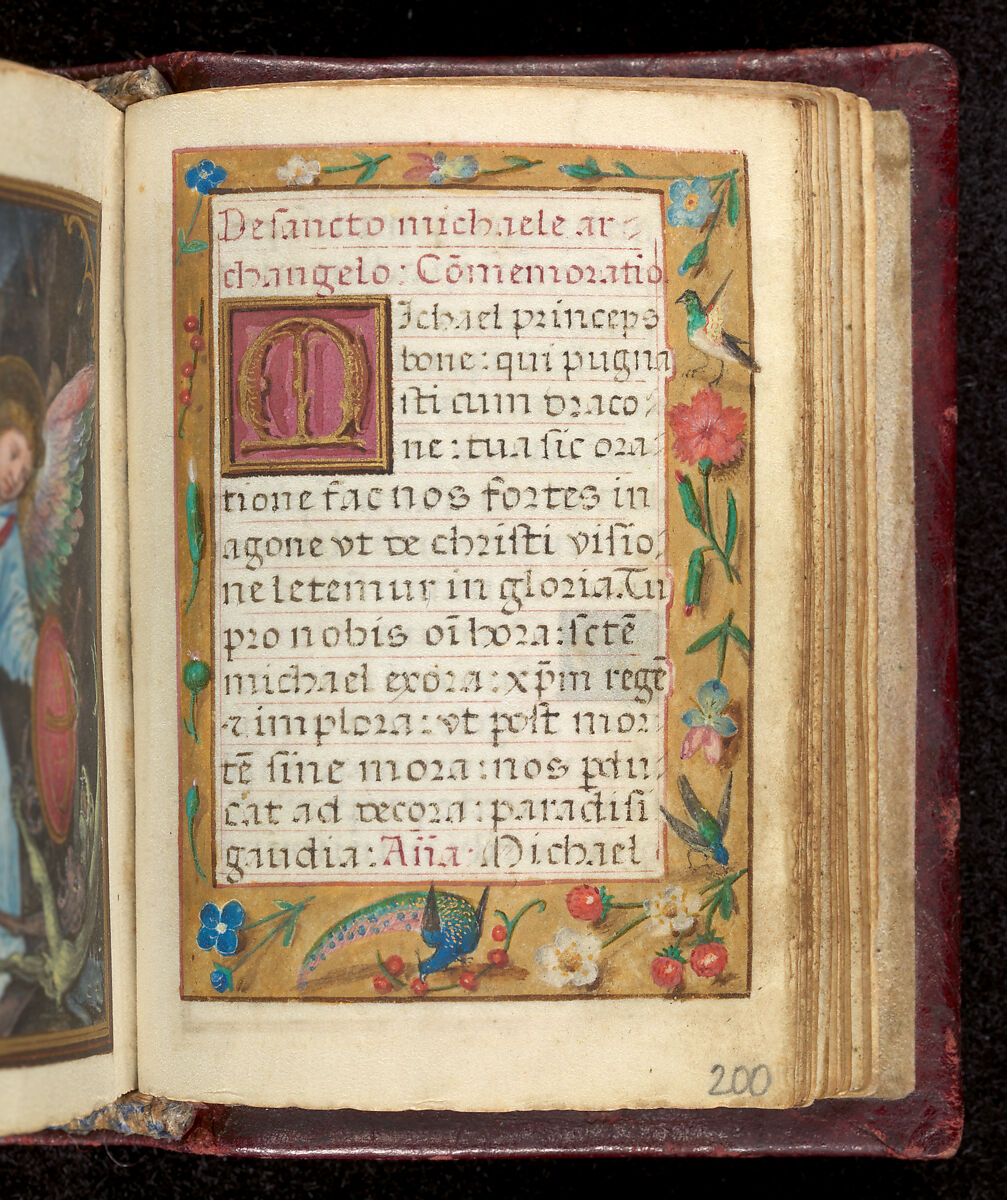 De sancto michaele ar-
changelo: Cōmemoratio
MIchael princeps
bone: qui pugna
sti cum draco-
ne: tua sic ora-
tione fac nos fortes in
agone vt de christi visio-
ne letemur in gloria. Tu
pro nobis oī hora: sctē
michael exora: xp̄m regē
⁊ implora: vt post mor-
tē sine mora: nos ꝑdu-
cat ad decora: paradisi
gaudia: Aña. Michael
200